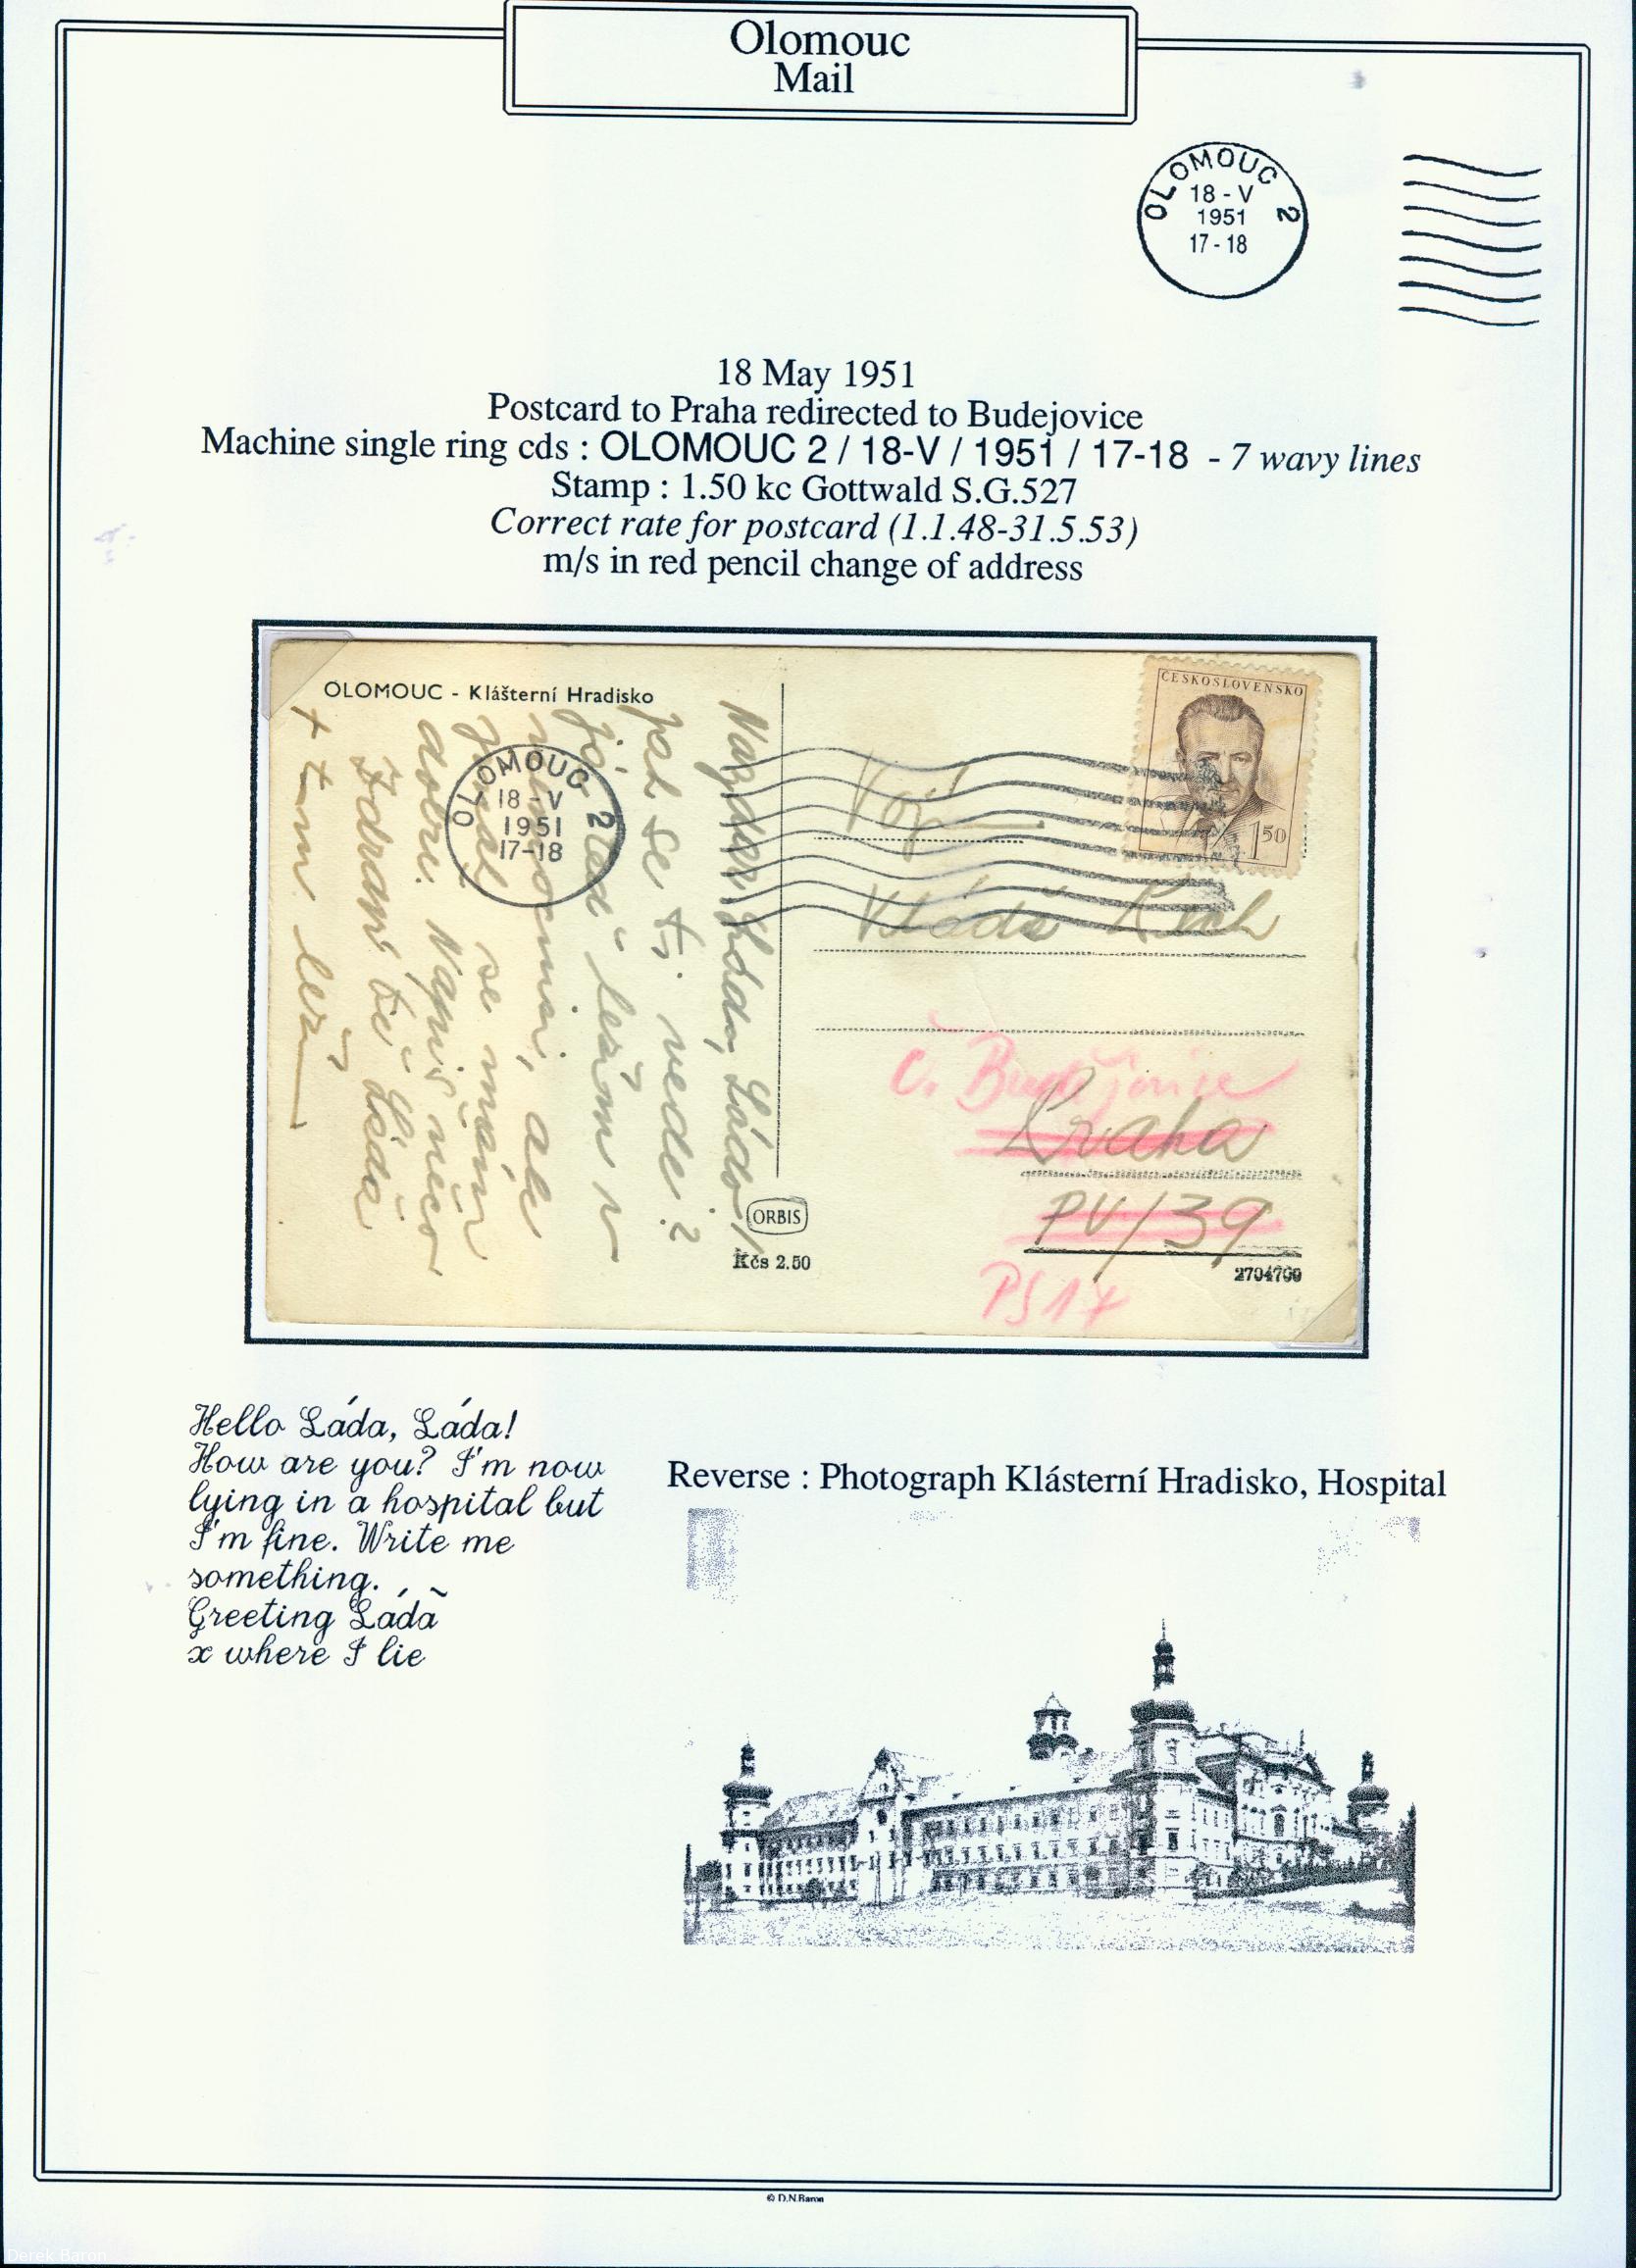 Olomouc
Mail
OLOMOUC 2
18 - V
1951
17 - 18
18 May 1951
Postcard to Praha redirected to Budejovice
Machine single ring cds : OLOMOUC 2 / 18-V / 1951 / 17-18 - 7 wavy lines
Stamp : 1.50 kc Gottwald S.G.527
Correct rate for postcard (1.1.48-31.5.53)
m/s in red pencil change of address
OLOMOUC - Klášterní Hradisko
OLOMOUC 2
18 - V
1951
17-18
Nazdar Láďo, Láďo!
jak se ti vede?
já teď ležím v
nemocnici, ale
se mám
dobře. Napiš něco
Zdraví tě Láďa
x tam ležím
ČESKOSLOVENSKO
1 50
Voj.
Vláďa
Č. Budějovice
Praha
PV/39
PS 17
ORBIS
Kčs 2.50
2704700
Hello Láda, Láda!
How are you? I'm now
lying in a hospital but
I'm fine. Write me
something.
Greeting Láda
x where I lie
Reverse : Photograph Klásterní Hradisko, Hospital
© D.N.Baron
Derek Baron